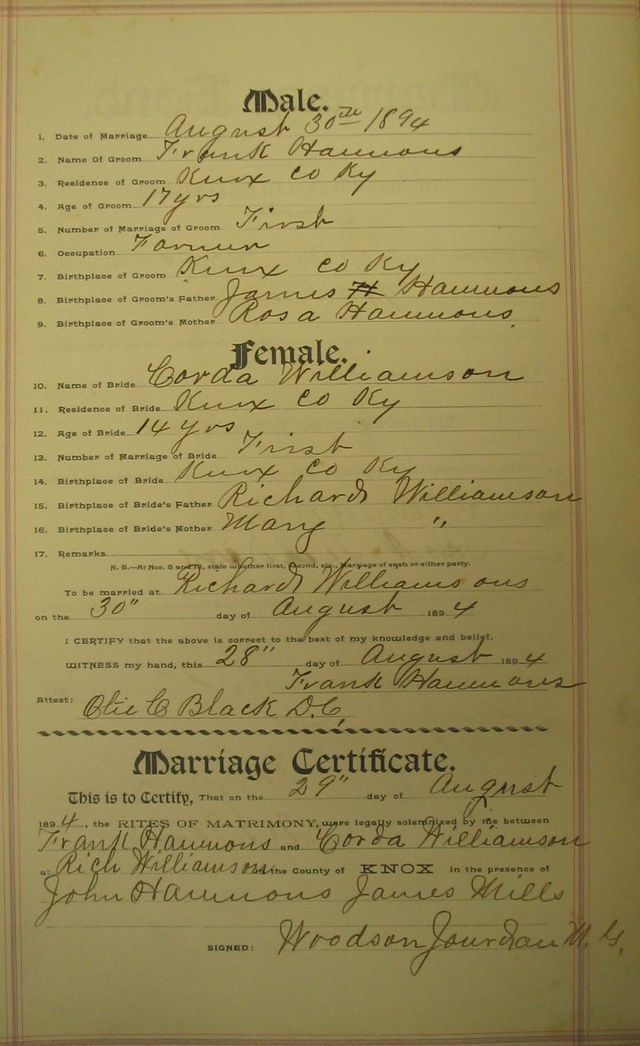 Male.
1. Date of Marriage August 30th 1894
2. Name Of Groom Frank Hammons
3. Residence of Groom Knox Co Ky
4. Age of Groom 17 yrs
5. Number of Marriage of Groom First
6. Occupation Farmer
7. Birthplace of Groom Knox Co Ky
8. Birthplace of Groom's Father James H Hammons
9. Birthplace of Groom's Mother Rosa Hammons
Female.
10. Name of Bride Corda Williamson
11. Residence of Bride Knox Co Ky
12. Age of Bride 14 yrs
13. Number of Marriage of Bride First
14. Birthplace of Bride Knox Co Ky
15. Birthplace of Bride's Father Richard Williamson
16. Birthplace of Bride's Mother Mary "
17. Remarks
N. B.—At Nos. 5 and 13, state whether first, second, etc., marriage of each or either party.
To be married at Richard Williamsons
on the 30" day of August 1894
I CERTIFY that the above is correct to the best of my knowledge and belief.
WITNESS my hand, this 28" day of August 1894
Frank Hammons
Attest: Black D.C.
Marriage Certificate.
This is to Certify, That on the 29" day of August
1894, the RITES OF MATRIMONY, were legally solemnized by me between
Frank Hammons and Corda Williamson
at Rich Williamson in the County of KNOX in the presence of
John Hammons James Mills
SIGNED: Woodson Jourdan M. G.